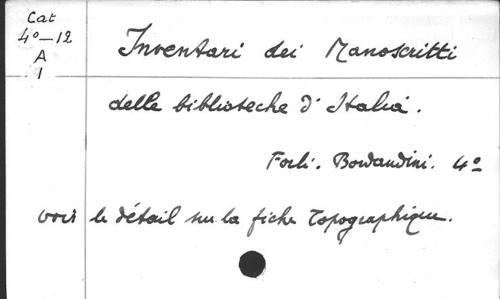 Cat
4º-12
A
1
Inventari dei Manoscritti
delle biblioteche d'Italia.
Forli. Bordandini. 4º
voir le détail sur la fiche Topographique.